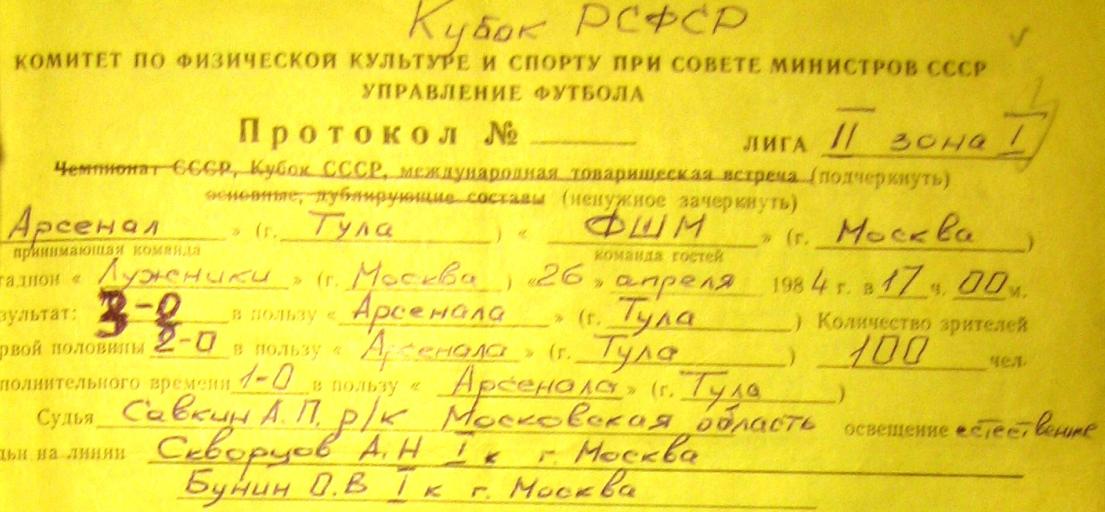 Кубок РСФСР
КОМИТЕТ ПО ФИЗИЧЕСКОЙ КУЛЬТУРЕ И СПОРТУ ПРИ СОВЕТЕ МИНИСТРОВ СССР
УПРАВЛЕНИЕ ФУТБОЛА
Протокол № ЛИГА II зона I
Чемпионат СССР, Кубок СССР, международная товарищеская встреча (подчеркнуть)
основные, дублирующие составы (ненужное зачеркнуть)
Арсенал » (г. Тула ) « ФШМ » (г. Москва )
принимающая команда команда гостей
тадион « Лужники » (г. Москва ) «26 » апреля 1984 г. в 17 ч. 00 м.
зультат: 3-0 в пользу « Арсенала » (г. Тула ) Количество зрителей
рвой половины 2-0 в пользу « Арсенала » (г. Тула ) 100 чел.
полнительного времени 1-0 в пользу « Арсенала » (г. Тула )
Судья Савкин А.П. р/к Московская область освещение естественное
ьи на линии Скворцов А.Н I к г. Москва
Бунин О.В I к г. Москва